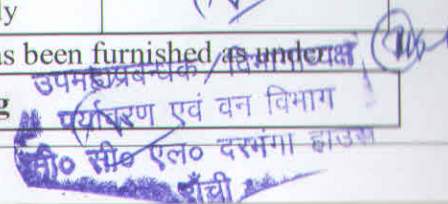 ly
as been furnished as under
उपमहाप्रबन्धक / विभागाध्यक्ष
g
पर्यावरण एवं वन विभाग
सी० सी० एल० दरभंगा हाउस
राँची